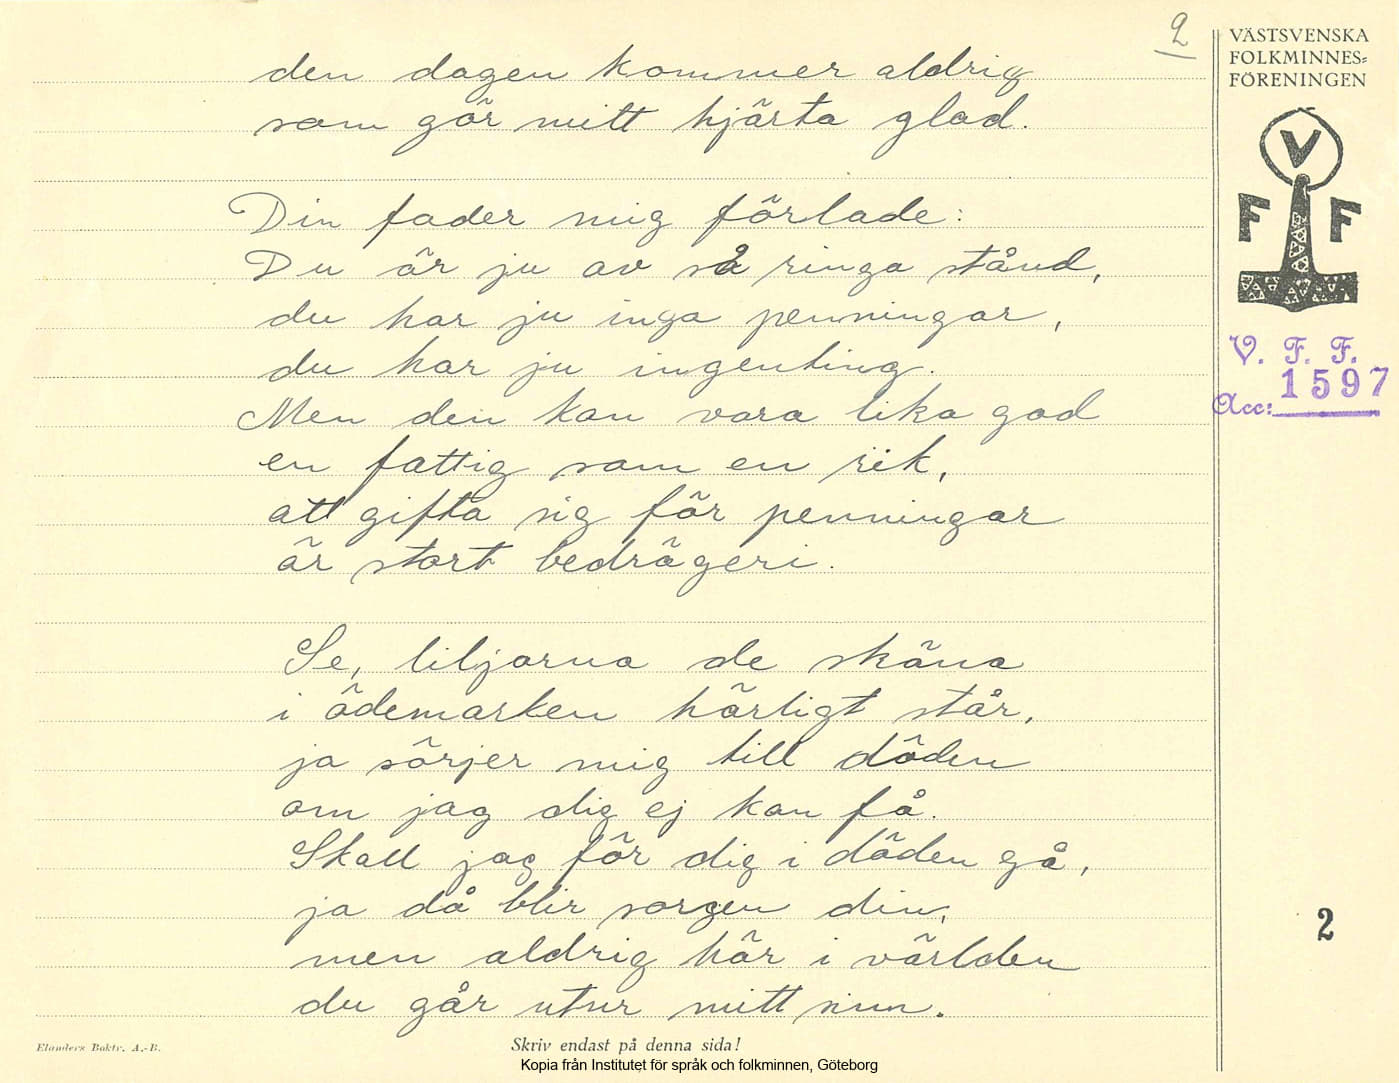 2
VÄSTSVENSKA
FOLKMINNES=
FÖRENINGEN
V
F F
V. F. F.
Acc: 1597
den dagen kommer aldrig
som gör mitt hjärta glad.
Din fader mig förlade:
Du är ju av så ringa stånd,
du har ju inga penningar,
du har ju ingenting.
Men den kan vara lika god
en fattig som en rik,
att gifta sig för penningar
är stort bedrägeri.
Se, liljorna de sköna
i ödemarken härligt står,
ja sörjer mig till döden
om jag dig ej kan få.
Skall jag för dig i döden gå,
ja då blir sorgen din,
men aldrig här i världen
du går utur mitt sinn.
2
Elanders Boktr. A.-B.
Skriv endast på denna sida!
Kopia från Institutet för språk och folkminnen, Göteborg